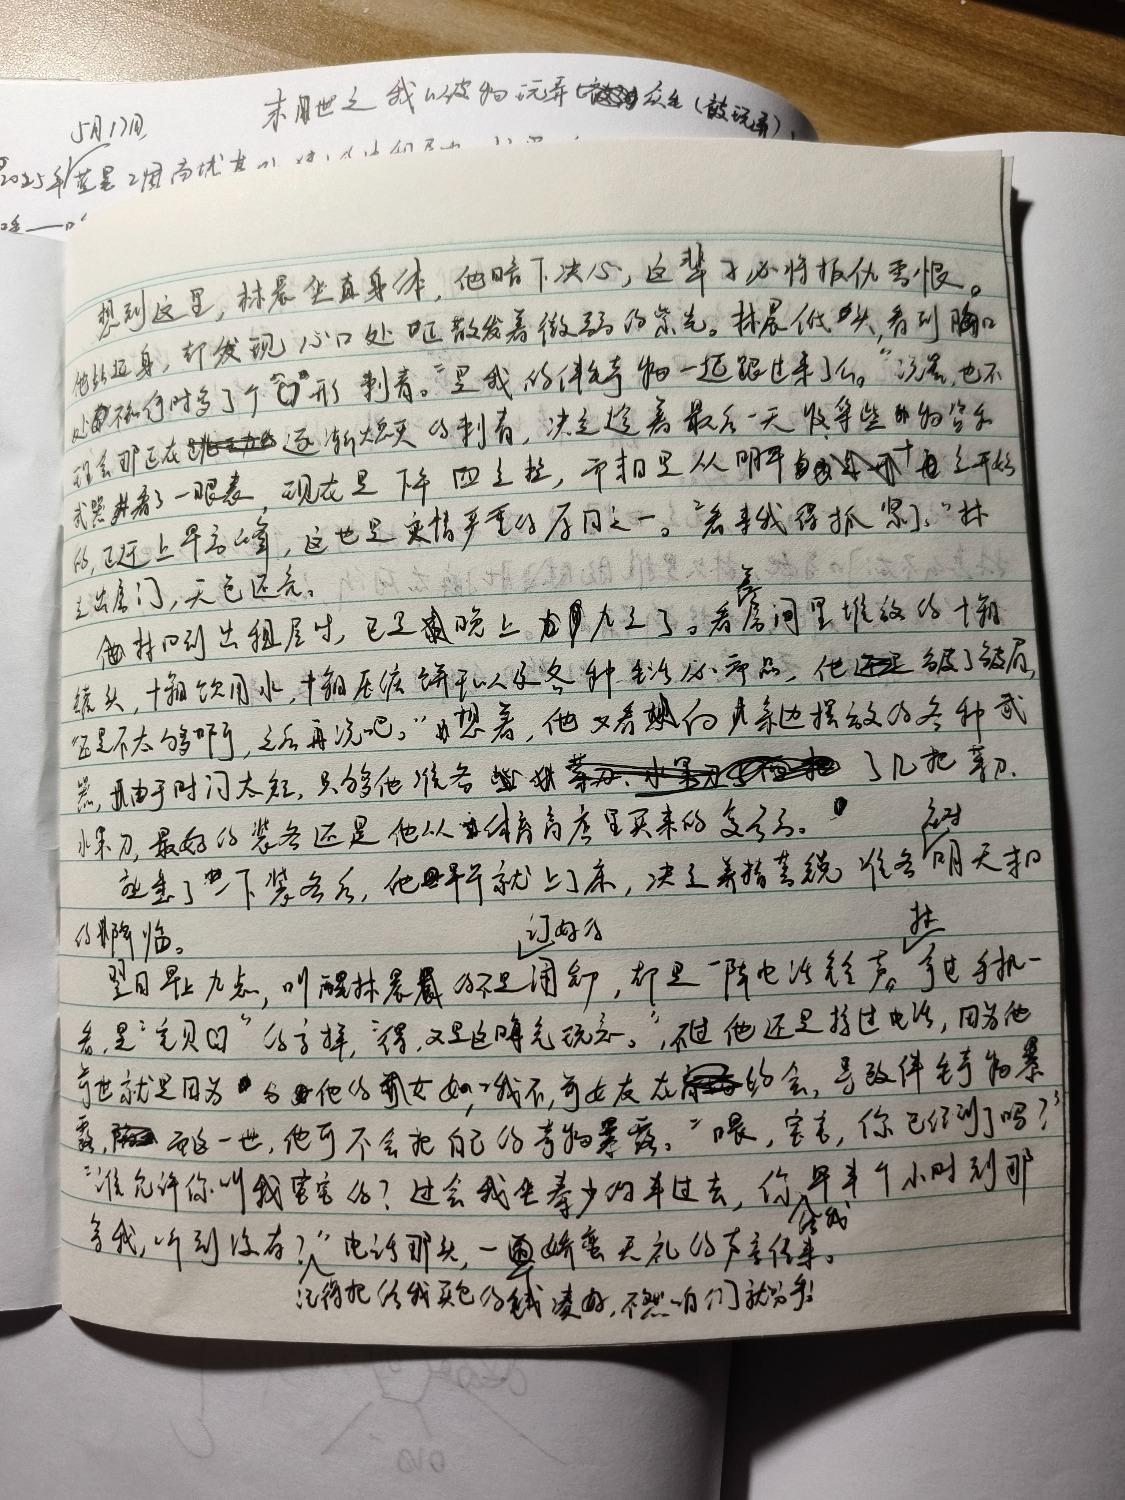 5月17日
末世之我以被 玩弄 众生(被玩弄)
2025年 蓝星
想到这里,林晨坐直身体,他暗下决心,这辈子必将报仇雪恨。
他站起身,却发现心口处 散发着微弱的紫光。林晨低头,看到胸口
处不知何时多了个“口”形刺青。“是我的伴生奇物一起跟过来了么。”说罢,也不
理会那正在逐渐熄灭的刺青,决定趁着最后一天收集些食物和
武器 看了一眼表,现在是下午四点整,而末日是从明早十点开始
的,已近上早高峰,这也是灾情严重的原因之一。“看来我得抓紧了。”林
走出房门,天色还亮。
他林回到出租屋时,已是晚上九点了。看着房间里堆放的十箱
罐头,十箱饮用水,十箱压缩饼干以及各种生活必需品,他皱了皱眉,
“还是不太够啊,之后再说吧。”想着,他又看向身边摆放的各种武
器,由于时间太短,只够他准备 了几把菜刀、
水果刀,最好的装备还是他从体育商店里买来的复合弓。
整了一下装备后,他早早就上了床,决定养精蓄锐准备应对明天末日
的降临。
翌日早上九点,叫醒林晨的不是订好的闹钟,却是一阵电话铃声。林拿过手机一
看,是“宝贝 ”的字样,“得,又是这晦气玩意。”,不过他还是接过电话,因为他
前世就是因为与他的前女友,哦不,前女友在约会,导致伴生奇物暴
露,而这一世,他可不会把自己的奇物暴露。“喂,宝宝,你已经到了吗?”
“谁允许你叫我宝宝的?过会我坐秦少的车过去,你给我早半个小时到那
等我,听到没有?”电话那头,一道娇蛮无礼的声音传来。
记得把给我买包的钱凑好,不然咱们就分手!